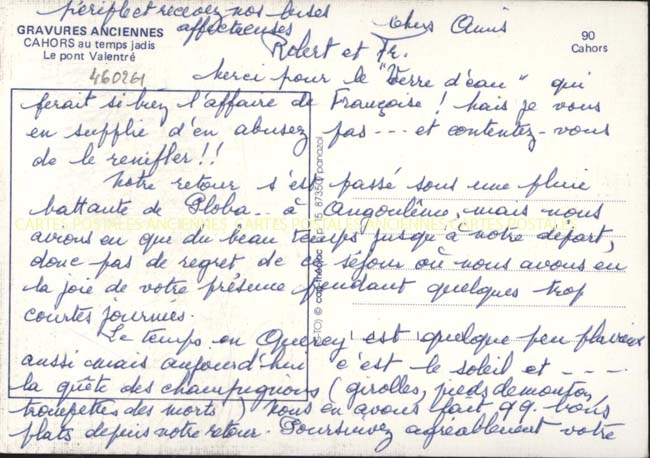 périple et recevez nos bises
affectueuses
Robert et Fr.
GRAVURES ANCIENNES
CAHORS au temps jadis
Le pont Valentré
460261
90
Cahors
chers Amis
Merci pour le "Verre d'eau" qui
ferait si bien l'affaire de Françoise ! Mais je vous
en supplie d'en abusez pas --- et contentez-vous
de le renifler !!
Notre retour s'est passé sous une pluie
battante de à Angoulême, mais nous
avons eu que du beau temps jusqu'à notre départ,
donc pas de regret de ce séjour où nous avons eu
la joie de votre présence pendant quelques trop
courtes journées.
Le temps en Quercy est quelque peu pluvieux
aussi mais aujourd'hui c'est le soleil et ----
la quête des champignons (girolles, pieds de mouton,
trompettes des morts) Nous en avons fait qq. bons
plats depuis notre retour. Poursuivez agréablement votre
CARTES POSTALES ANCIENNES CARTES POSTALES ANCIENNES CARTES POSTALES
87350 panazol